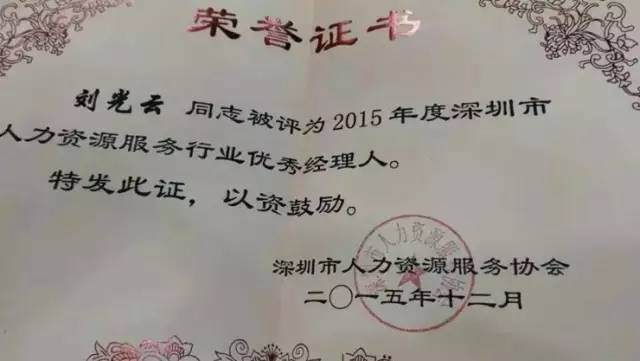 荣誉证书
刘光云 同志被评为2015年度深圳市
人力资源服务行业优秀经理人。
特发此证，以资鼓励。
深圳市人力资源服务协会
二〇一五年十二月